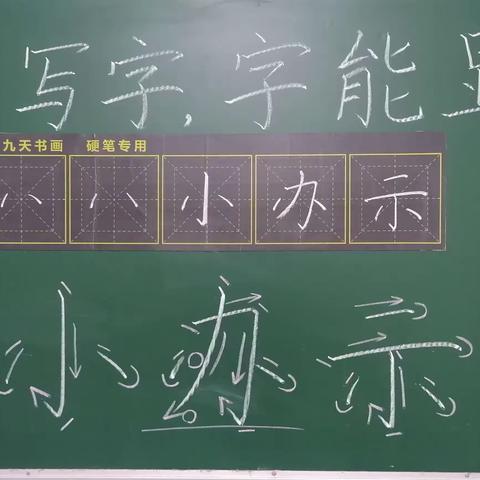 写字,字能
九天书画 硬笔专用
小 办 示
小 办 示